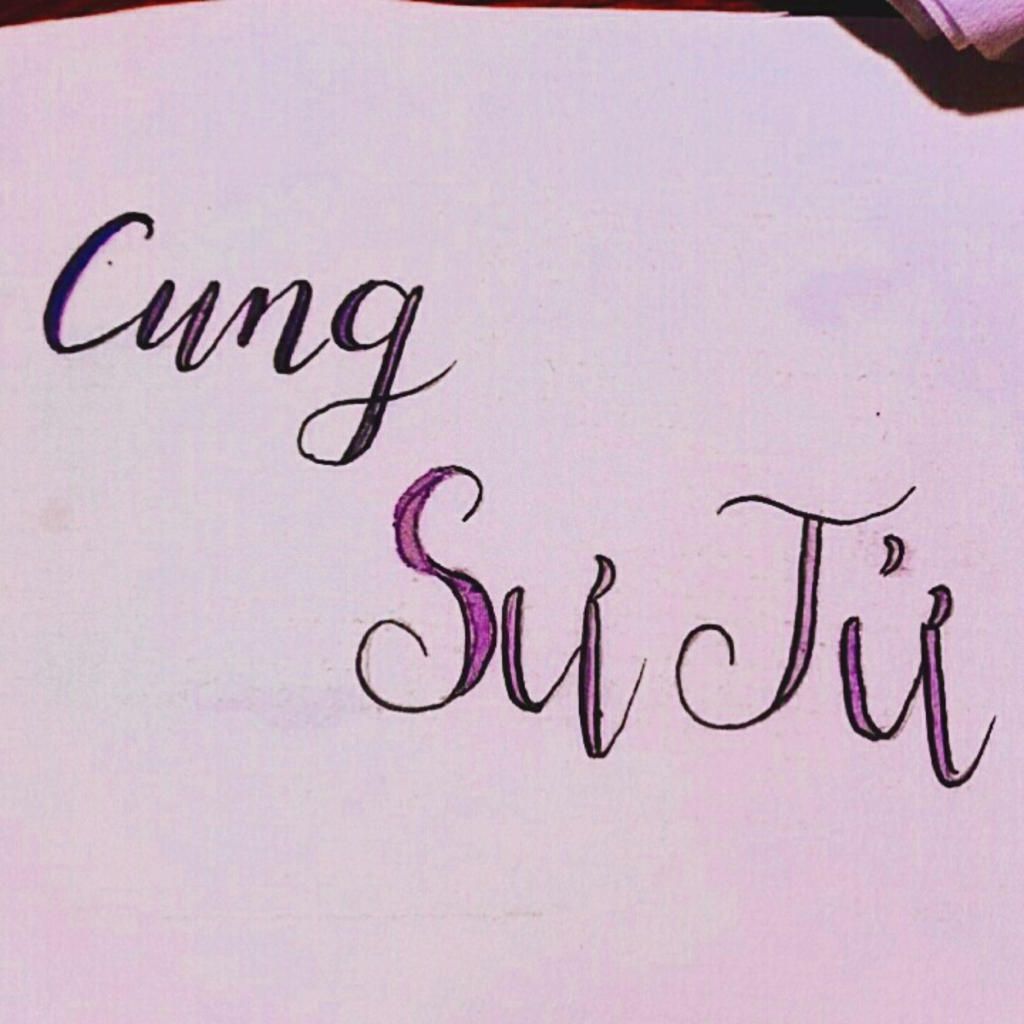 Cung
Sư Tử